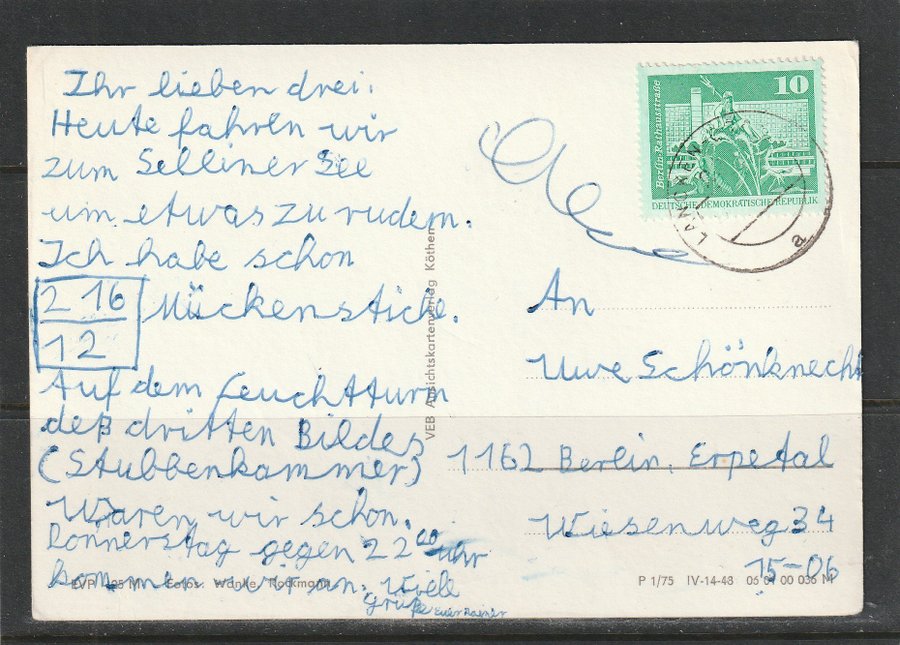 Ihr lieben drei.
Heute fahren wir
zum Selliner See
um etwas zu rudern.
Ich habe schon
2 16
12
Mückenstiche.
Auf dem Leuchtturm
deß dritten Bildes
(Stubbenkammer)
Waren wir schon.
Donnerstag gegen 22 00 uhr
kommen wir an. Viele
grüße Euer
EVP Fotos: Wanke, 
VEB Ansichtskartenverlag Köthen
10
Berlin-Rathausstraße
DEUTSCHE DEMOKRATISCHE REPUBLIK
a
An
Uwe Schönknecht
1162 Berlin. Erpetal
Wiesenweg 34
15-06
P 1/75 IV-14-48 06 01 00 036 M